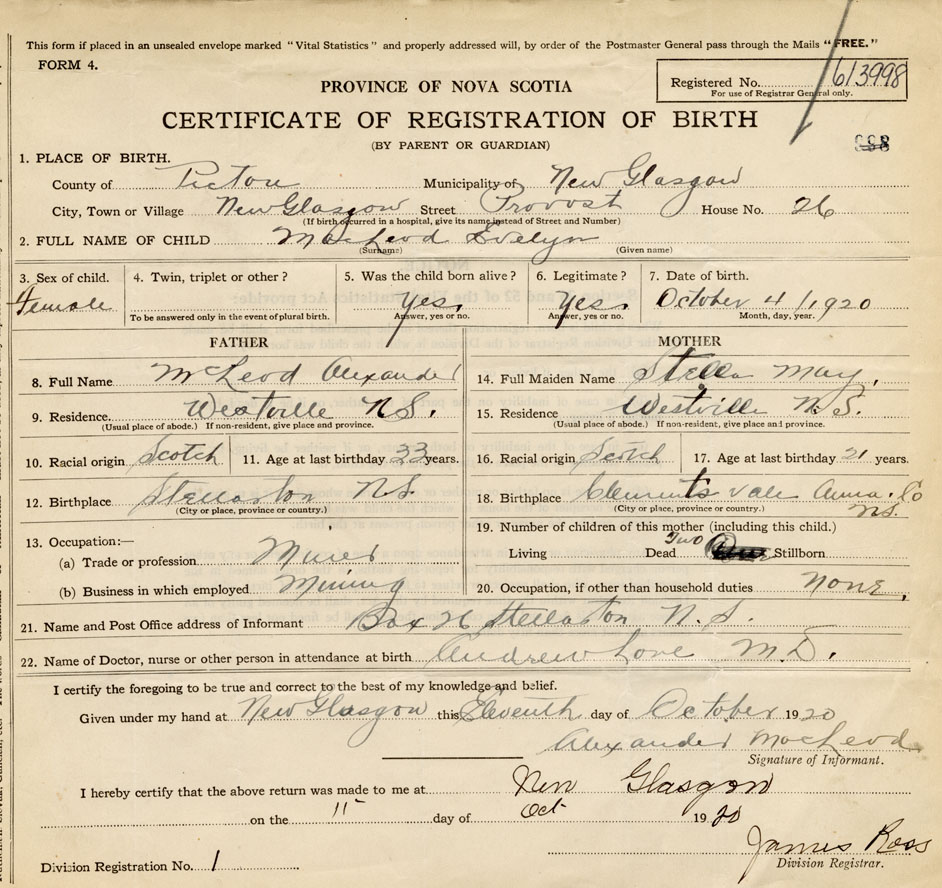 This form if placed in an unsealed envelope marked "Vital Statistics" and properly addressed will, by order of the Postmaster General pass through the Mails "FREE."
FORM 4.
Registered No. 613998
For use of Registrar General only.
PROVINCE OF NOVA SCOTIA
CERTIFICATE OF REGISTRATION OF BIRTH
(BY PARENT OR GUARDIAN)
998
1. PLACE OF BIRTH.
County of Pictou Municipality of New Glasgow
City, Town or Village New Glasgow Street Provost House No. 26
(If birth occurred in a hospital, give its name instead of Street and Number)
2. FULL NAME OF CHILD MacLeod Evelyn
(Surname) (Given name)
3. Sex of child. 4. Twin, triplet or other? 5. Was the child born alive? 6. Legitimate? 7. Date of birth.
Female Yes. Yes. October 4/1920
To be answered only in the event of plural birth. Answer, yes or no. Answer, yes or no. Month, day, year.
FATHER MOTHER
8. Full Name McLeod Alexander 14. Full Maiden Name Stella May.
9. Residence. Westville N.S. 15. Residence Westville N.S.
(Usual place of abode.) If non-resident, give place and province. (Usual place of abode.) If non-resident, give place and province.
10. Racial origin Scotch 11. Age at last birthday 33 years. 16. Racial origin Scotch 17. Age at last birthday 21 years.
12. Birthplace Stellarton N.S. 18. Birthplace Clements vale Anna. Co N.S.
(City or place, province or country.) (City or place, province or country.)
19. Number of children of this mother (including this child.)
13. Occupation:— Living Two Dead Stillborn
(a) Trade or profession Miner
(b) Business in which employed Mining 20. Occupation, if other than household duties None.
21. Name and Post Office address of Informant Box 26 Stellarton N.S.
22. Name of Doctor, nurse or other person in attendance at birth Andrew Love M.D.
I certify the foregoing to be true and correct to the best of my knowledge and belief.
Given under my hand at New Glasgow this Eleventh day of October 1920
Alexander MacLeod
Signature of Informant.
I hereby certify that the above return was made to me at New Glasgow
on the 11 day of Oct 1920
James Ross
Division Registrar.
Division Registration No. 1